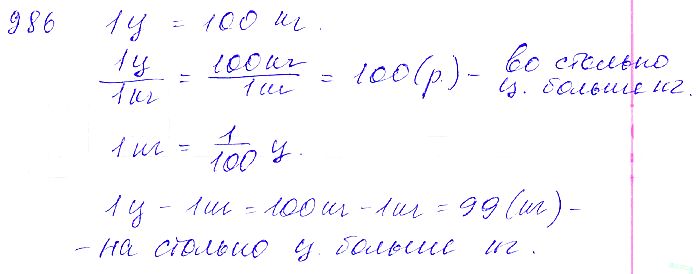 986 1ц = 100 кг.
1ц/1кг = 100кг/1кг = 100(р.) – во столько ц. больше кг.
1кг = 1/100 ц.
1ц - 1кг = 100кг - 1кг = 99(кг) -
- на столько ц. больше кг.